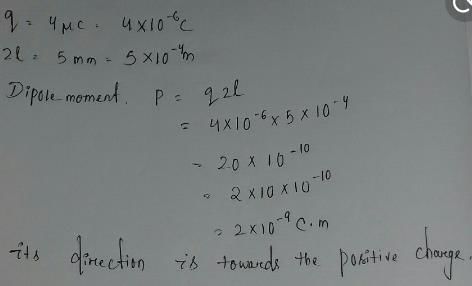 q = 4μC = 4×10⁻⁶C
2l = 5 mm = 5×10⁻⁴m
Dipole moment, P = q2l
= 4×10⁻⁶×5×10⁻⁴
= 20 × 10⁻¹⁰
= 2×10×10⁻¹⁰
= 2×10⁻⁹ C.m
its direction is towards the positive charge.